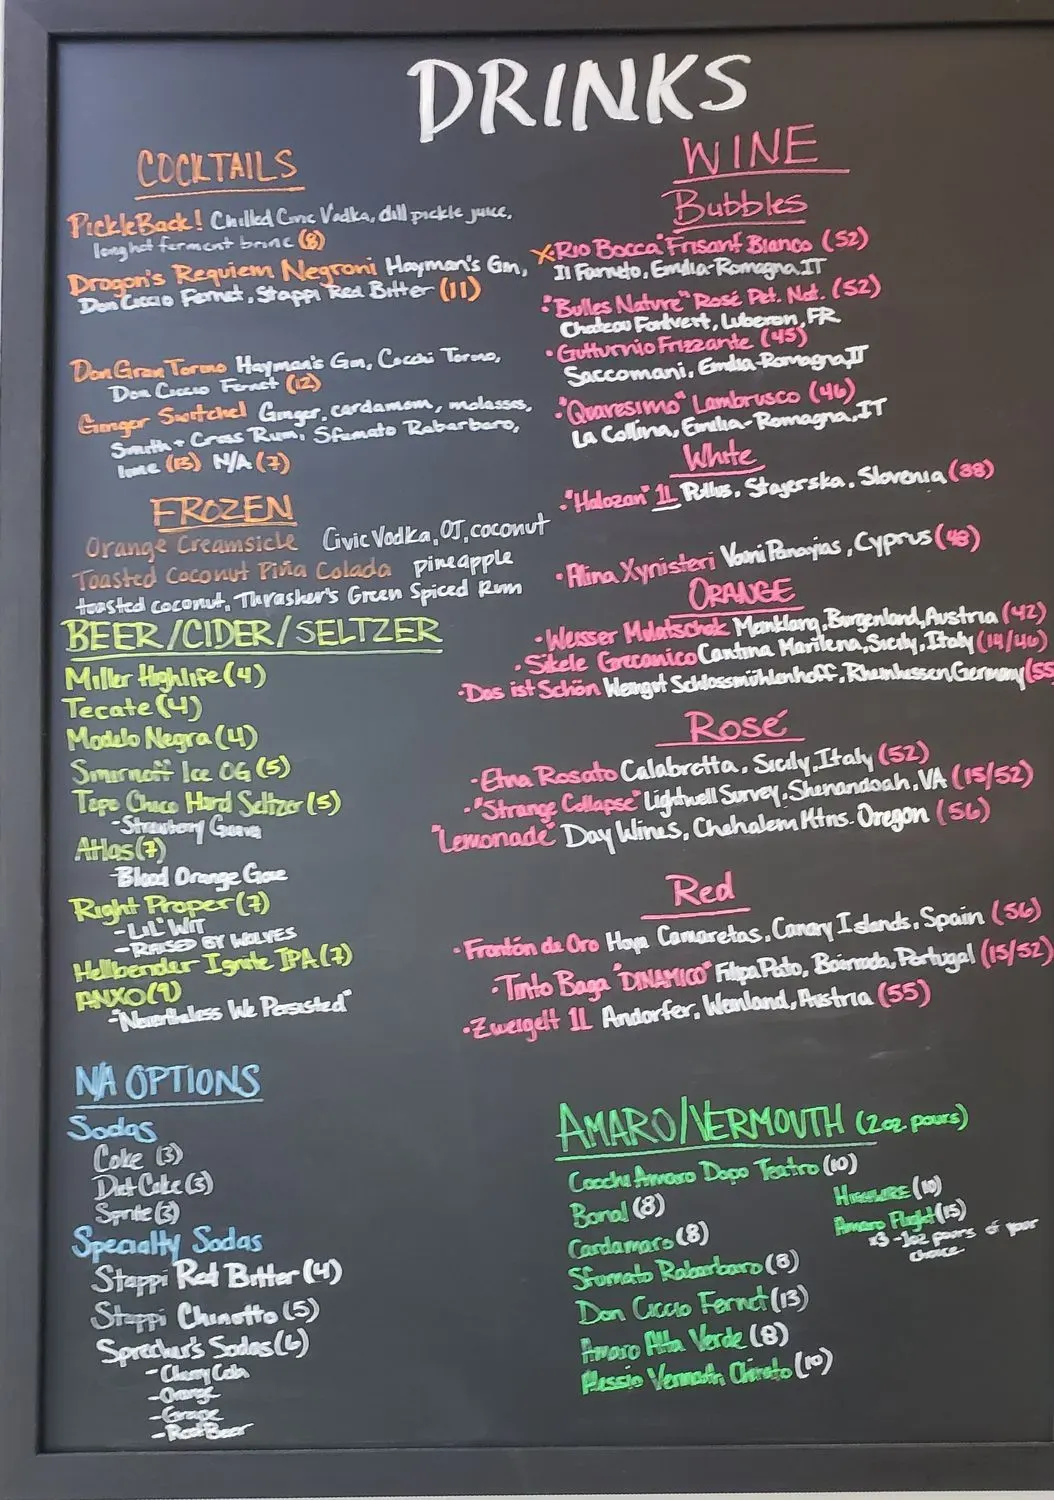 DRINKS
COCKTAILS
PickleBack! Chilled Civic Vodka, dill pickle juice,
long hot ferment brine (8)
Dragon's Requiem Negroni Hayman's Gin,
Don Ciccio Fernet, Stappi Red Bitter (11)
Don Gran Torino Hayman's Gin, Cocchi Torino,
Don Ciccio Fernet (12)
Ginger Switchel Ginger, cardamom, molasses,
Smith + Cross Rum, Sfumato Rabarbaro,
lime (13) N/A (7)
FROZEN
Orange Creamsicle Civic Vodka, OJ, coconut
Toasted Coconut Piña Colada pineapple
toasted coconut, Thrasher's Green Spiced Rum
BEER/CIDER/SELTZER
Miller Highlife (4)
Tecate (4)
Modelo Negra (4)
Smirnoff Ice OG (5)
Topo Chico Hard Seltzer (5)
-Strawberry Guava
Atlas (7)
-Blood Orange Gose
Right Proper (7)
-LIL' WIT
-RAISED BY WOLVES
Hellbender Ignite IPA (7)
ANXO (9)
-"Nevertheless We Persisted"
N/A OPTIONS
Sodas
Coke (3)
Diet Coke (3)
Sprite (3)
Specialty Sodas
Stappi Red Bitter (4)
Stappi Chinotto (5)
Sprecher's Sodas (6)
-Cherry Cola
-Orange
-Grape
-Root Beer
WINE
Bubbles
x Rio Bocca "Frisant" Bianco (52)
Il Farneto, Emilia-Romagna, IT
•"Bulles Nature" Rosé Pet. Nat. (52)
Chateau Fontvert, Luberon, FR
•Gutturnio Frizzante (45)
Saccomani, Emilia-Romagna, IT
•"Quaresimo" Lambrusco (46)
La Collina, Emilia-Romagna, IT
White
•"Halozan" 1L Pullus, Stajerska, Slovenia (38)
•Alina Xynisteri Vouni Panayias, Cyprus (48)
ORANGE
•Weisser Mulatschak Meinklang, Burgenland, Austria (42)
•Sikele Grecanico Cantina Marilena, Sicily, Italy (14/46)
•Das ist Schön Weingut Schlossmühlenhoff, Rheinhessen Germany (55
Rosé
•Etna Rosato Calabretta, Sicily, Italy (52)
•"Strange Collapse" Lightwell Survey, Shenandoah, VA (15/52)
"Lemonade" Day Wines, Chehalem Mtns. Oregon (56)
Red
•Frontón de Oro Hoya Camaretas, Canary Islands, Spain (56)
•Tinto Baga "DINAMICO" Filipa Pato, Bairrada, Portugal (15/52)
•Zweigelt 1L Andorfer, Weinland, Austria (55)
AMARO/VERMOUTH (2oz. pours)
Cocchi Amaro Dopo Teatro (10)
Bonal (8)
Cardamaro (8)
Sfumato Rabarbaro (8)
Don Ciccio Fernet (13)
Amaro Alta Verde (8)
Alessio Vermouth Chinato (10)
(10)
Amaro Flight (15)
*3 -1oz pours of your
choice